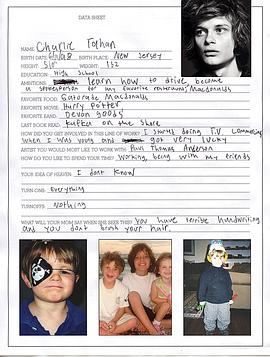 DATA SHEET
NAME: Charlie Tolhan
BIRTH DATE: BIRTH PLACE: New Jersey
HEIGHT: 5'0" WEIGHT: 132
EDUCATION: High School
AMBITIONS: learn how to drive, become
a spokesperson for my favorite restaurant, Macdonalds
FAVORITE FOOD: Gatorade Macdonalds
FAVORITE MOVIE: Harry Potter
FAVORITE BAND: Devon goods
LAST BOOK READ: Kafka on the Shore
HOW DID YOU GET INVOLVED IN THIS LINE OF WORK? I started doing T.V. Commercials
when I was young and got very lucky
ARTIST YOU WOULD MOST LIKE TO WORK WITH: Paul Thomas Anderson
HOW DO YOU LIKE TO SPEND YOUR TIME? Working, being with my friends
YOUR IDEA OF HEAVEN: I dont know
TURN ONS: Everything
TURNOFFS: Nothing
WHAT WILL YOUR MOM SAY WHEN SHE SEES THIS? You have terrible handwriting
and you dont brush your hair.